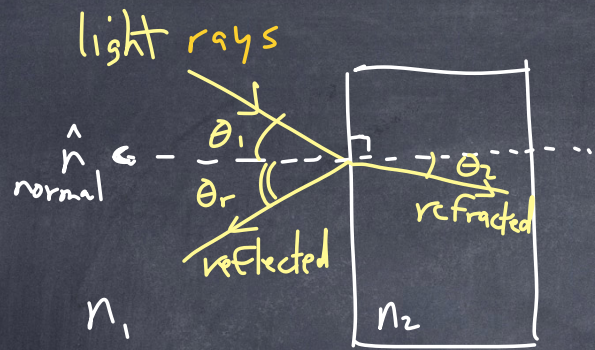 light rays
θ₁
n̂
normal
θᵣ
θ₂
refracted
reflected
n₁
n₂